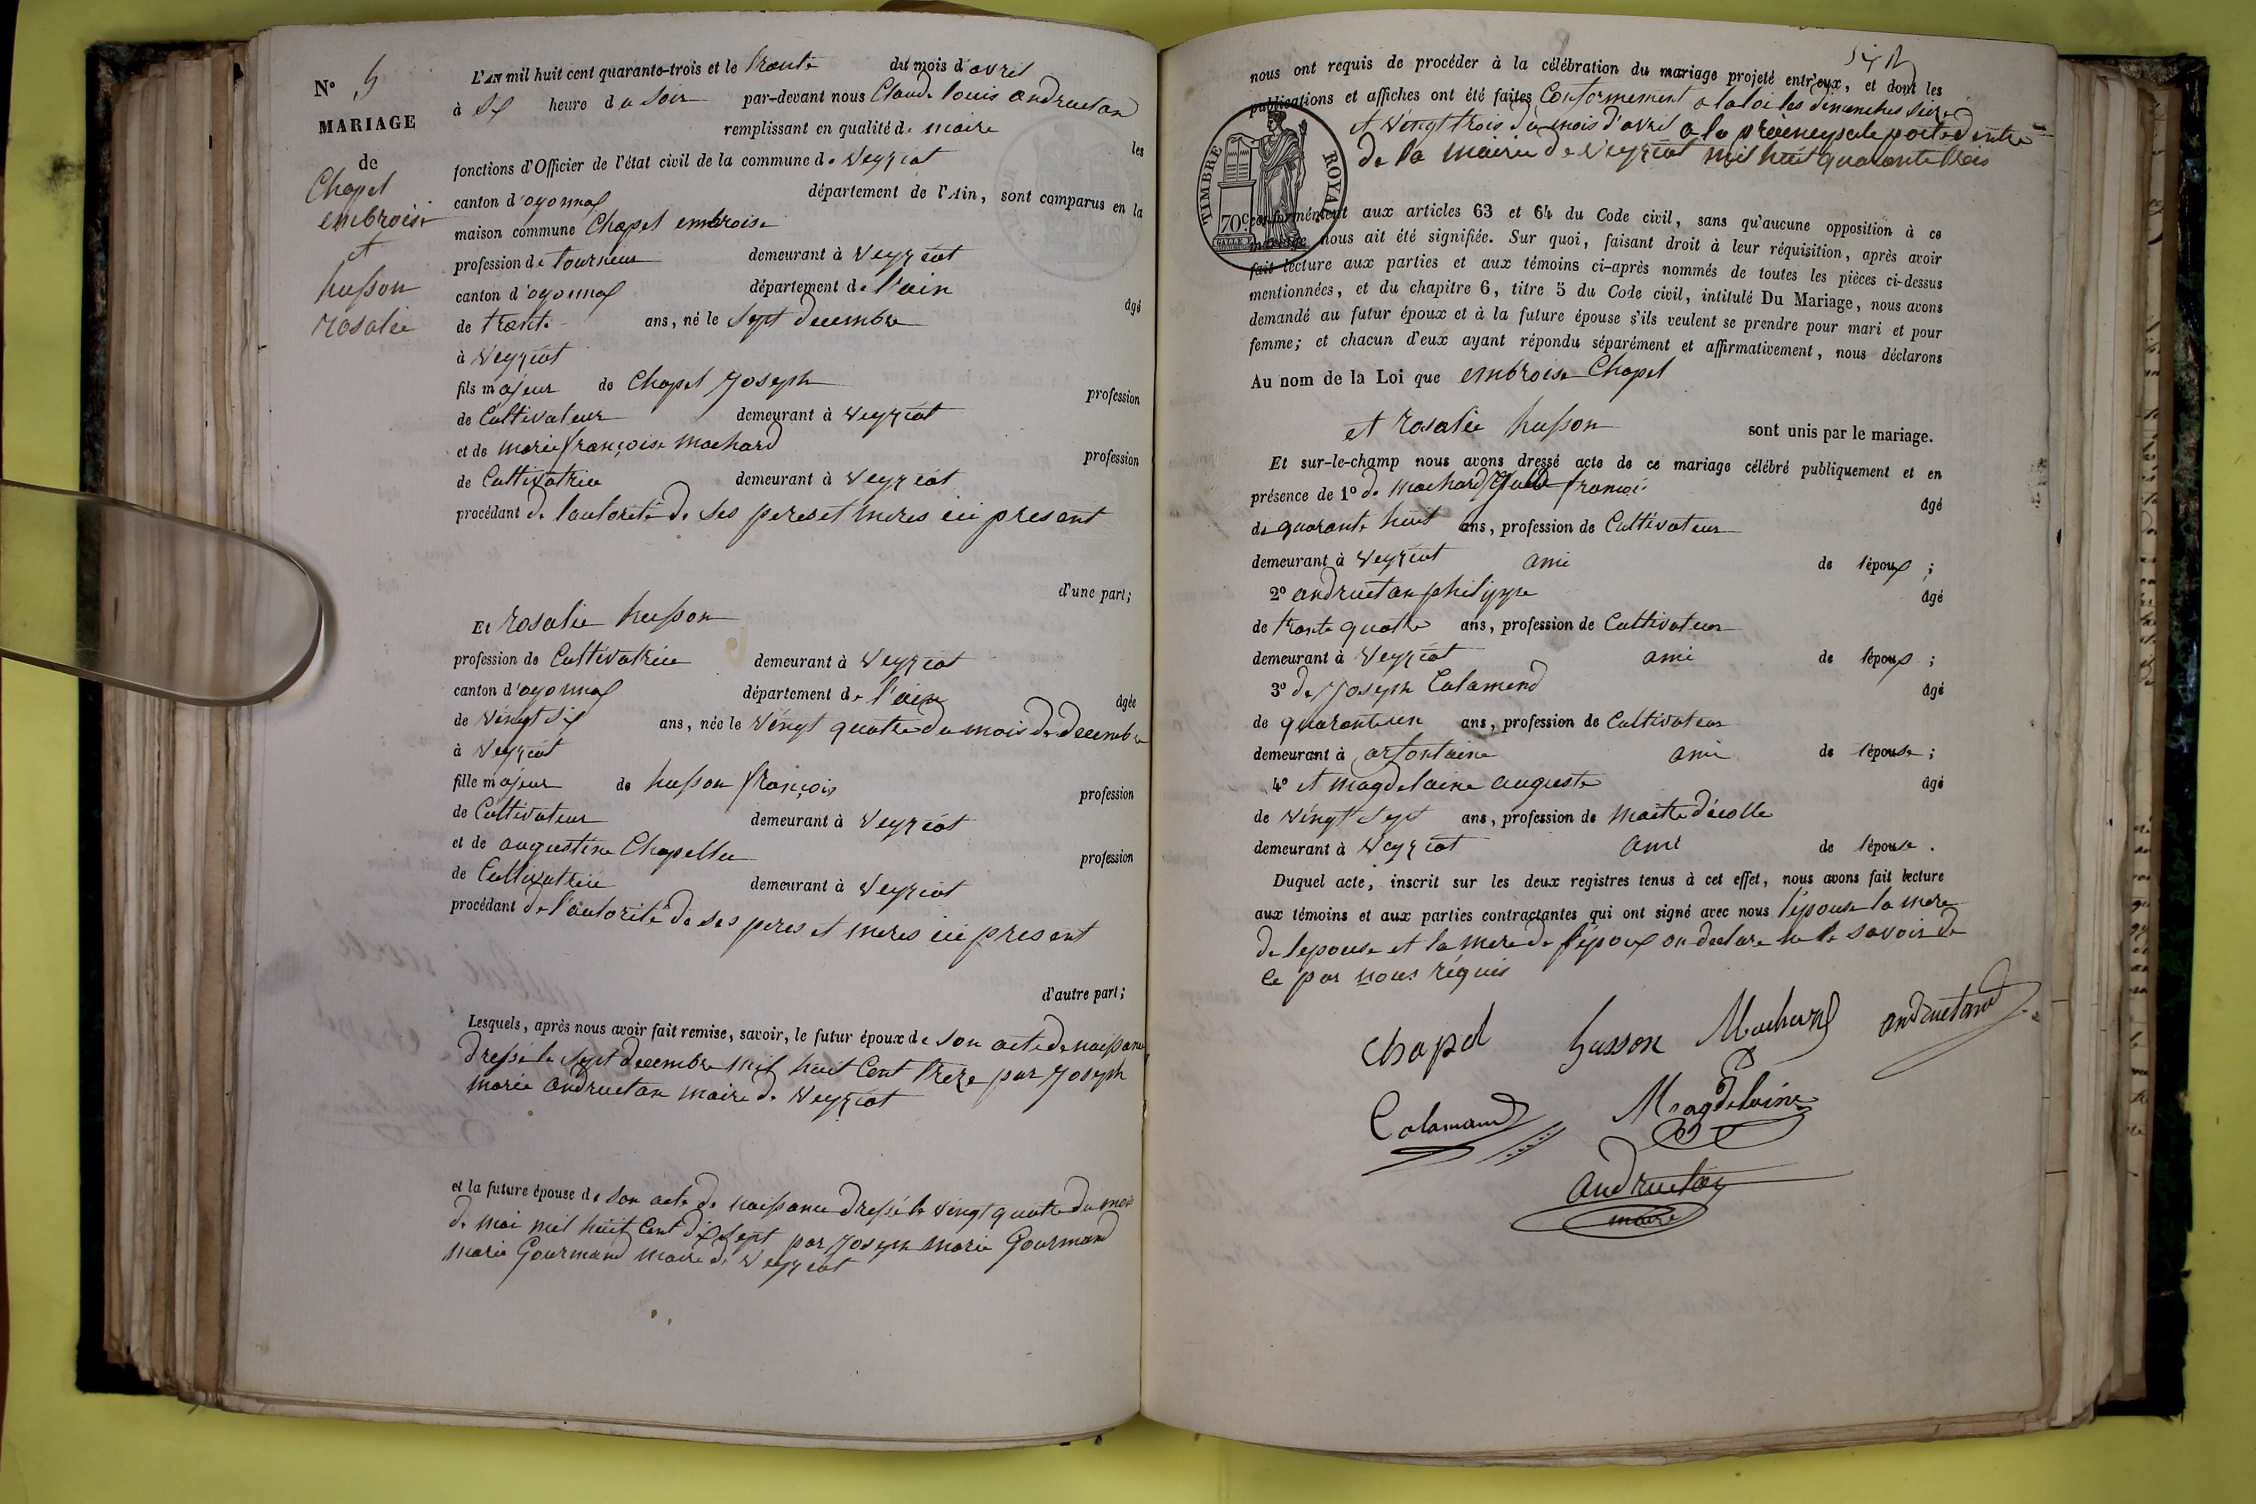 N° 5
MARIAGE
de
Chapel
embroise
et
husson
rosalie
L'AN mil huit cent quarante-trois et le trante du mois d'avril
à six heure du soir par-devant nous Claude louis andruetan
remplissant en qualité de maire les
fonctions d'Officier de l'état civil de la commune de Veyziat
canton d'oyonnax département de l'Ain, sont comparus en la
maison commune Chapel embroise
profession de tourneur demeurant à Veyziat
canton d'oyonnax département de l'ain âgé
de trante ans, né le sept decembre
à Veyziat
fils majeur de Chapel Joseph profession
de Cultivateur demeurant à Veyziat
et de marie françoise machard profession
de Cultivatrice demeurant à Veyziat
procédant de l'autorité de ses peres et meres ici present
d'une part;
Et rosalie husson
profession de Cultivatrice demeurant à Veyziat
canton d'oyonnax département de l'ain âgée
de vingt six ans, née le vingt quatre du mois de decembre
à Veyziat
fille majeur de husson françois profession
de Cultivateur demeurant à Veyziat
et de augustine Chapellu profession
de Cultivatrice demeurant à Veyziat
procédant de l'autorité de ses peres et meres ici present
d'autre part;
Lesquels, après nous avoir fait remise, savoir, le futur époux de son acte de naissance
dressé le sept decembre mil huit Cent treze par Joseph
marie andruetan maire de Veyziat
et la future épouse de son acte de naissance dressé le vingt quatre du mois
de mai mil huit Cent dix sept par Joseph marie Gourmand
marie Gourmand maire de Veyziat
nous ont requis de procéder à la célébration du mariage projeté entr'eux, et dont les
publications et affiches ont été faites Conformement a la loi les dimanches seize
et vingt trois du mois d'avril a la preincypale porte d'entré
de la mairie de Veyziat mil huit quarante trois
TIMBRE ROYAL
70 c
conformément aux articles 63 et 64 du Code civil, sans qu'aucune opposition à ce
mariage nous ait été signifiée. Sur quoi, faisant droit à leur réquisition, après avoir
fait lecture aux parties et aux témoins ci-après nommés de toutes les pièces ci-dessus
mentionnées, et du chapitre 6, titre 5 du Code civil, intitulé Du Mariage, nous avons
demandé au futur époux et à la future épouse s'ils veulent se prendre pour mari et pour
femme; et chacun d'eux ayant répondu séparément et affirmativement, nous déclarons
Au nom de la Loi que embroise Chapel
et rosalie husson sont unis par le mariage.
Et sur-le-champ nous avons dressé acte de ce mariage célébré publiquement et en
présence de 1° de machard françois âgé
de quarante huit ans, profession de Cultivateur
demeurant à Veyziat ami de l'époux ;
2° andruetan philippe âgé
de trante quatre ans, profession de Cultivateur
demeurant à Veyziat ami de l'époux ;
3° de Joseph Calamend âgé
de quarante un ans, profession de Cultivateur
demeurant à arfontaine ami de l'épouse ;
4° et magdelaine auguste âgé
de vingt sept ans, profession de maitre d'écolle
demeurant à Veyziat ami de l'épouse .
Duquel acte, inscrit sur les deux registres tenus à cet effet, nous avons fait lecture
aux témoins et aux parties contractantes qui ont signé avec nous l'épouse la mere
de lepouse et la mere de l'époux on declare ne le savoir de
ce par nous réquis
Chapel husson Machard andruetand
Calamand Magdelaine
andruetan
maire